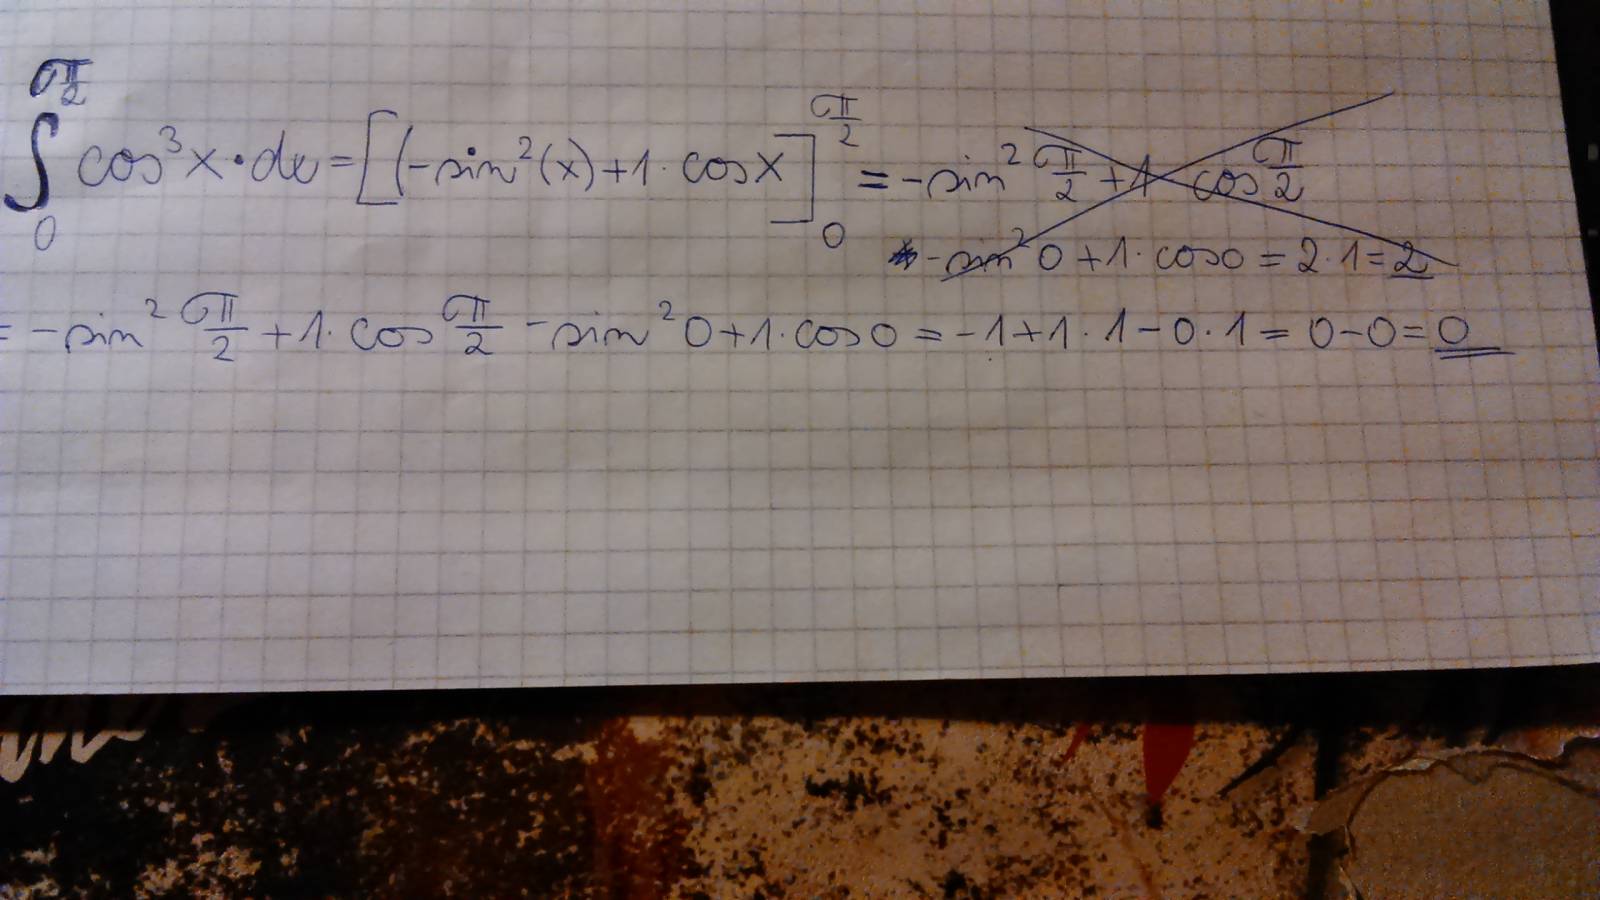 ∫₀^{π/2} cos³x·dx = [(-sin²(x)+1·cosx]₀^{π/2} = -sin² π/2 + 1 cos π/2
-sin²0+1·cos0 = 2·1 = 2
= -sin² π/2 + 1·cos π/2 - sin²0+1·cos0 = -1+1·1-0·1 = 0-0 = 0